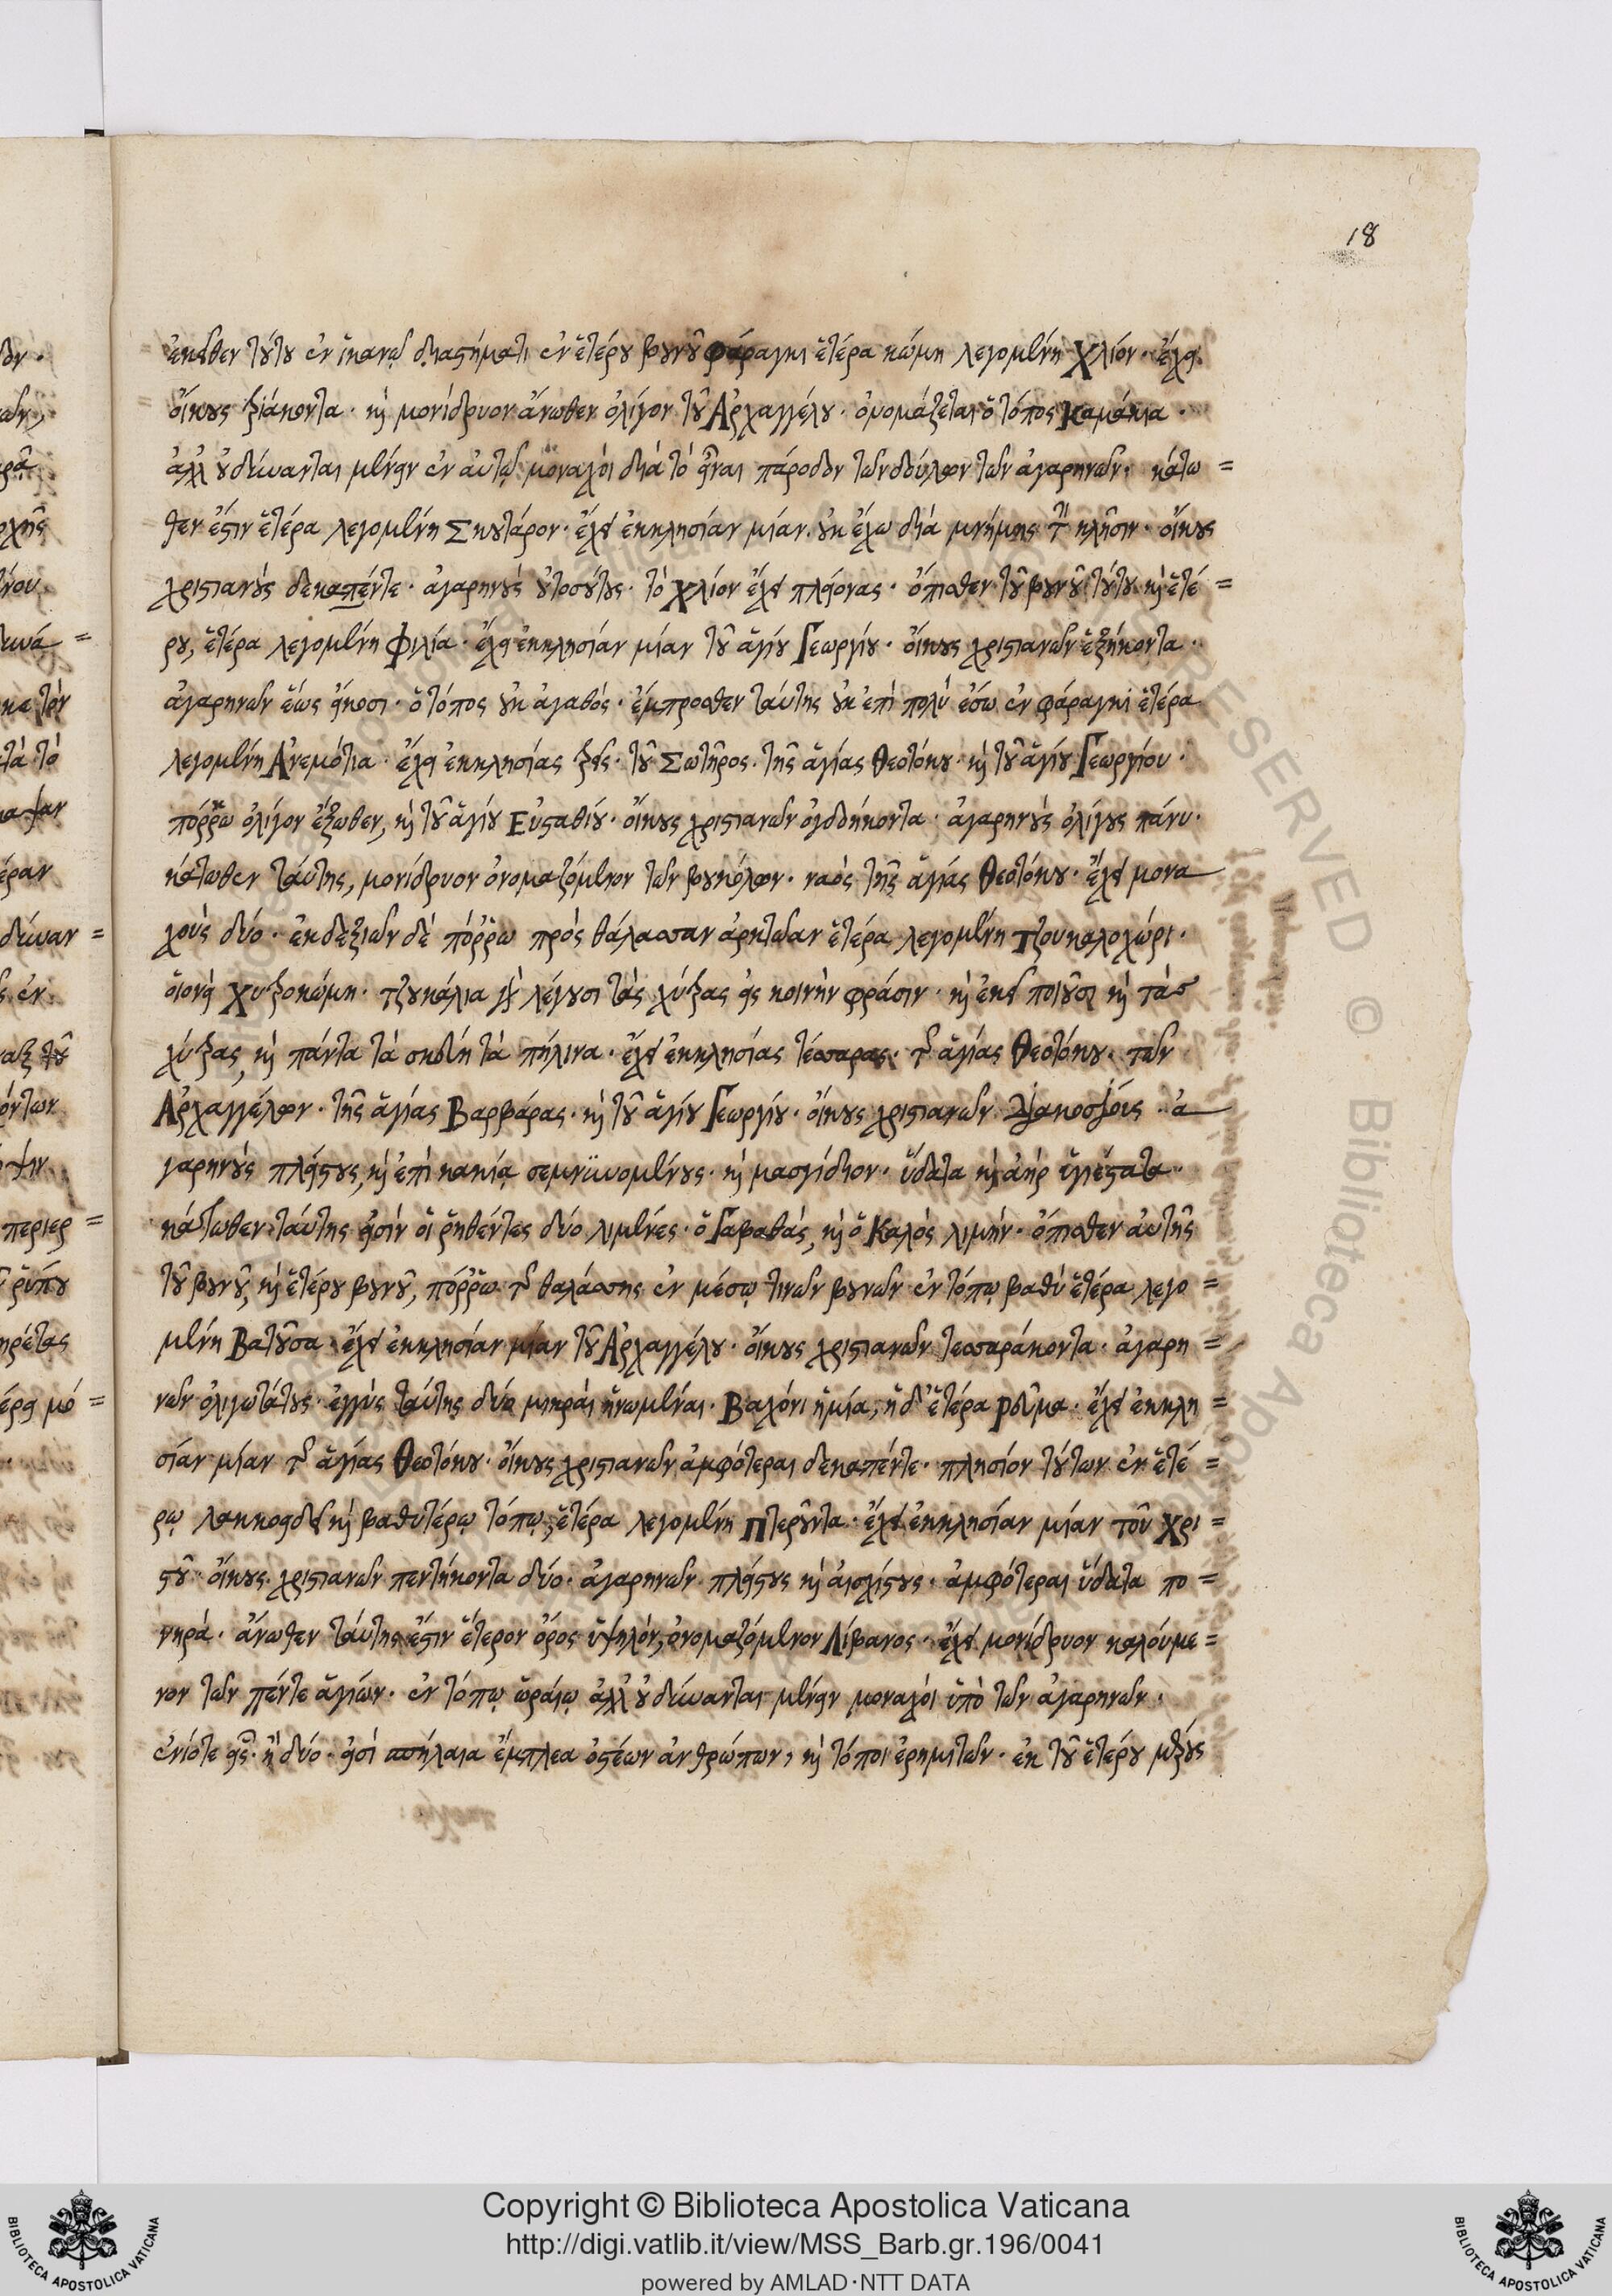 18
ἐκεῖθεν τούτου ἐν ἱκανῷ διαστήματι ἐν ἑτέρου βουνοῦ φάραγκι ἑτέρα κώμη λεγομένη Χλίον· ἔχει
οἴκους τριάκοντα· καὶ μονίδριον ἄνωθεν ὀλίγον τοῦ Ἀρχαγγέλου· ὀνομάζεται ὁ τόπος Καμάκια·
ἀλλ' οὐ δύνανται μένειν ἐν αὐτῷ μοναχοὶ διὰ τὸ εἶναι πάροδον τῶν δούλων τῶν ἀγαρηνῶν· κάτω =
θεν ἐστιν ἑτέρα λεγομένη Σκουτάρον· ἔχει ἐκκλησίαν μίαν. οὐκ ἔχω διὰ μνήμης τὴν κλῆσιν· οἴκους
χριστιανοὺς δεκαπέντε· ἀγαρηνοὺς οὐ τοσούτους· τὸ Χλίον ἔχει πλείονας· ὄπισθεν τοῦ βουνοῦ τούτου καὶ ἑτέ =
ρου, ἑτέρα λεγομένη Φιλία· ἔχει ἐκκλησίαν μίαν τοῦ ἁγίου Γεωργίου· οἴκους χριστιανῶν ἑξήκοντα·
ἀγαρηνῶν ἕως εἴκοσι· ὁ τόπος οὐκ ἀγαθός· ἔμπροσθεν ταύτης οὐκ ἐπὶ πολὺ ἔσω ἐν φάραγκι ἑτέρα
λεγομένη Ἀνεμότια· ἔχει ἐκκλησίας τρεῖς· τοῦ Σωτῆρος· τῆς ἁγίας Θεοτόκου· καὶ τοῦ ἁγίου Γεωργίου·
πόῤῥω ὀλίγον ἔξωθεν, καὶ τοῦ ἁγίου Εὐσταθίου· οἴκους χριστιανῶν ὀγδοήκοντα· ἀγαρηνοὺς ὀλίγους πάνυ·
κάτωθεν ταύτης, μονίδριον ὀνομαζόμενον τῶν βουκόλων· ναὸς τῆς ἁγίας Θεοτόκου· ἔχει μονα
χοὺς δύο· ἐκ δεξιῶν δὲ πόῤῥω πρὸς θάλασσαν ἀρκτώαν ἑτέρα λεγομένη Τζουκαλοχώρι·
οἱονεὶ Χυτροκώμη· τζουκάλια γὰρ λέγουσι τὰς χύτρας εἰς κοινὴν φράσιν· καὶ ἐκεῖ ποιοῦσι καὶ τὰσ
χύτρας, καὶ πάντα τὰ σκεύη τὰ πήλινα· ἔχει ἐκκλησίας τέσσαρας· τῆς ἁγίας Θεοτόκου· τῶν
Ἀρχαγγέλων· τῆς ἁγίας Βαρβάρας· καὶ τοῦ ἁγίου Γεωργίου· οἴκους χριστιανῶν διακοσίους· ἀ
γαρηνοὺς πλείστους, καὶ ἐπὶ κακίᾳ σεμνϋνομένους· καὶ μασγίδιον· ὕδατα καὶ ἀὴρ ὑγιέστατα·
κάτωθεν ταύτης εἰσὶν οἱ ῥηθέντες δύο λιμένες· ὁ Γαβαθάς, καὶ ὁ Καλὸς λιμήν· ὄπισθεν αὐτῆς
τοῦ βουνοῦ, καὶ ἑτέρου βουνοῦ, πόῤῥω τῆς θαλάσσης ἐν μέσῳ τινῶν βουνῶν ἐν τόπῳ βαθὺ ἑτέρα λεγο =
μένη Βατοῦσα· ἔχει ἐκκλησίαν μίαν τοῦ Ἀρχαγγέλου· οἴκους χριστιανῶν τεσσαράκοντα· ἀγαρη =
νῶν ὀλιγωτάτους· ἐγγὺς ταύτης δύο μικραὶ ἡνωμέναι· Βαχόνι ἡ μία, ἡ δ' ἑτέρα Ρεῦμα· ἔχει ἐκκλη =
σίαν μίαν τῆς ἁγίας Θεοτόκου· οἴκους χριστιανῶν ἀμφότεραι δεκαπέντε· πλησίον τούτων ἐν ἑτέ =
ρῳ λακκοειδεῖ καὶ βαθυτέρῳ τόπῳ, ἑτέρα λεγομένη Πτεροῦντα· ἔχει ἐκκλησίαν μίαν τοῦ Χρι =
στοῦ· οἴκους χριστιανῶν πεντήκοντα δύο· ἀγαρηνῶν πλείστους καὶ αἰσχίστους· ἀμφότεραι ὕδατα πο =
νηρά· ἄνωθεν ταύτης ἐστιν ἕτερον ὄρος ὑψηλόν, ὀνομαζόμενον Λίβανος· ἔχει μονίδριον καλούμε =
νον τῶν πέντε ἁγίων· ἐν τόπῳ ὡραίῳ ἀλλ' οὐ δύνανται μένειν μοναχοὶ ὑπὸ τῶν ἀγαρηνῶν·
ἐνίοτε εἷς· ἢ δύο· εἰσὶ σπήλαια ἔμπλεα ὀστέων ἀνθρώπων, καὶ τόποι ἐρημιτῶν· ἐκ τοῦ ἑτέρου μέρους
Copyright © Biblioteca Apostolica Vaticana
http://digi.vatlib.it/view/MSS_Barb.gr.196/0041
powered by AMLAD·NTT DATA
BIBLIOTECA APOSTOLICA VATICANA
BIBLIOTECA APOSTOLICA VATICANA